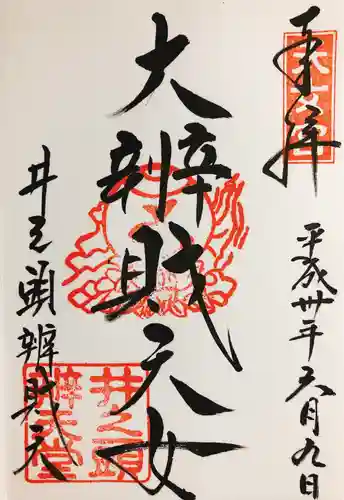 奉拝
平成卅年六月九日
大辨財天女
井之頭辨財天
井之頭
辨財天堂